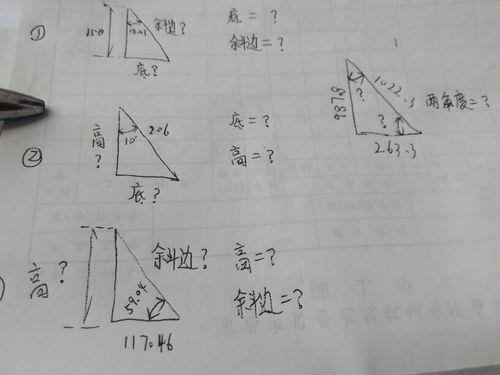 ① 150 18.43 斜边? 底?
底 = ?
斜边 = ?
987.8 1022.3 ? ? 263.3 两角度=?
② 高? 10° 206 底?
底 = ?
高 = ?
高? 斜边? 59.04 117.46
高=?
斜边=?